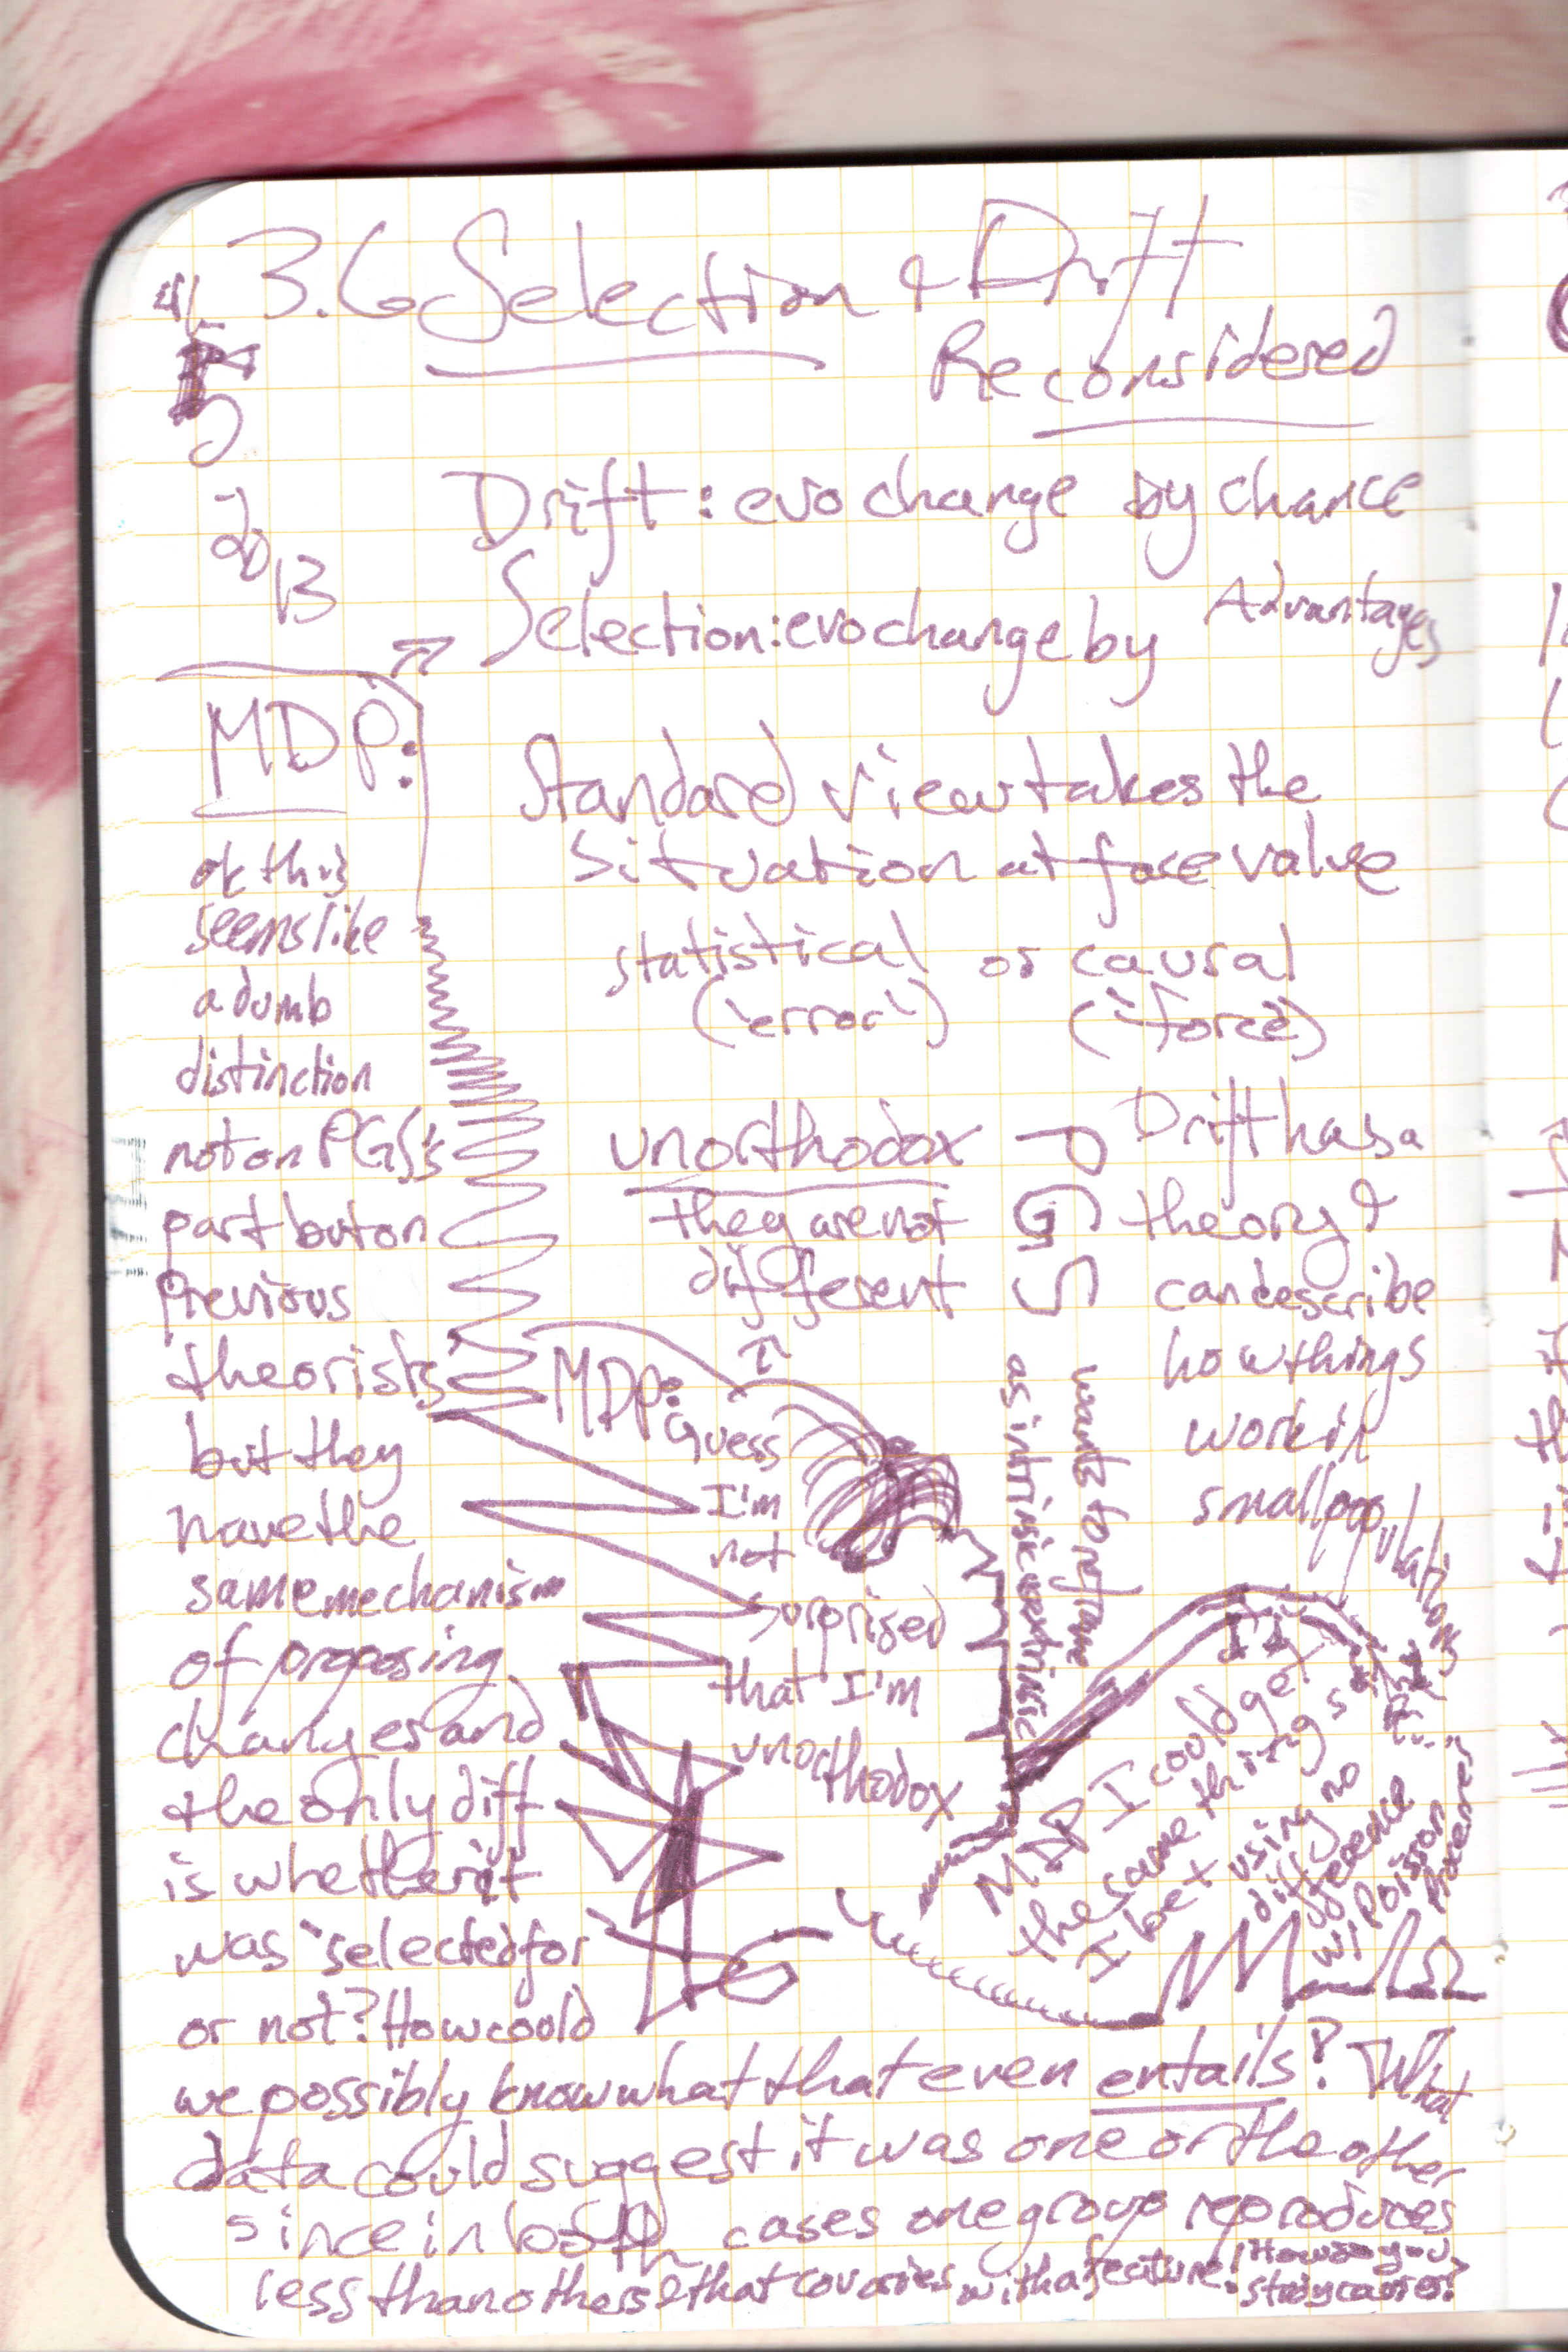 3.6 Selection & Drift
Reconsidered
5
2013
Drift: evo change by chance
Selection: evo change by Advantages
MDP:
ok this
seems like
a dumb
distinction
not on PGS's
part but on
previous
theorists'
but they
have the
same mechanism
of proposing
changes and
the only diff
is whether it
was "selected for"
or not? How could
we possibly know what that even entails? What
data could suggest it was one or the other
since in both cases one group reproduces
less than others & that covaries with a feature!
How do you
study causes?
Standard view takes the
situation at face value
statistical or causal
('error') ('force')
unorthodox
they are not
different
PGS
Drift has a
theory &
can describe
how things
work in
small populations
wants to reframe
as intrinsic v extrinsic
MDP: I
Guess
I'm
not
surprised
that I'm
unorthodox
MDP I could get
the same things
I bet using no
difference
w/ Poisson
Processes